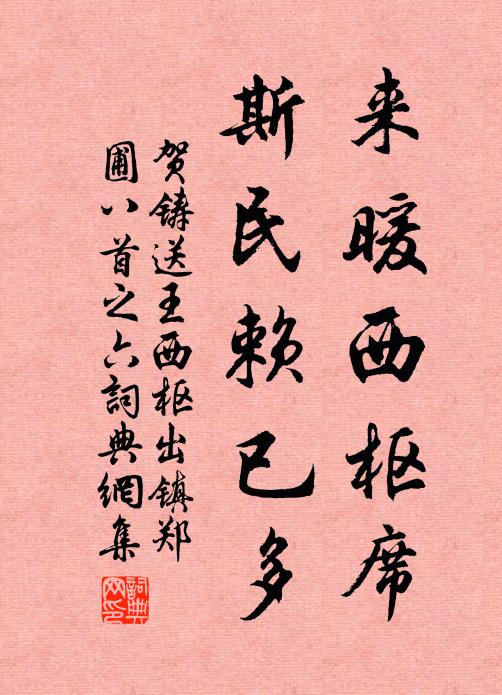 来暖西枢席
斯民赖已多
贺铸送王西枢出镇郑
圃八首之六詞典網集
詞典网印